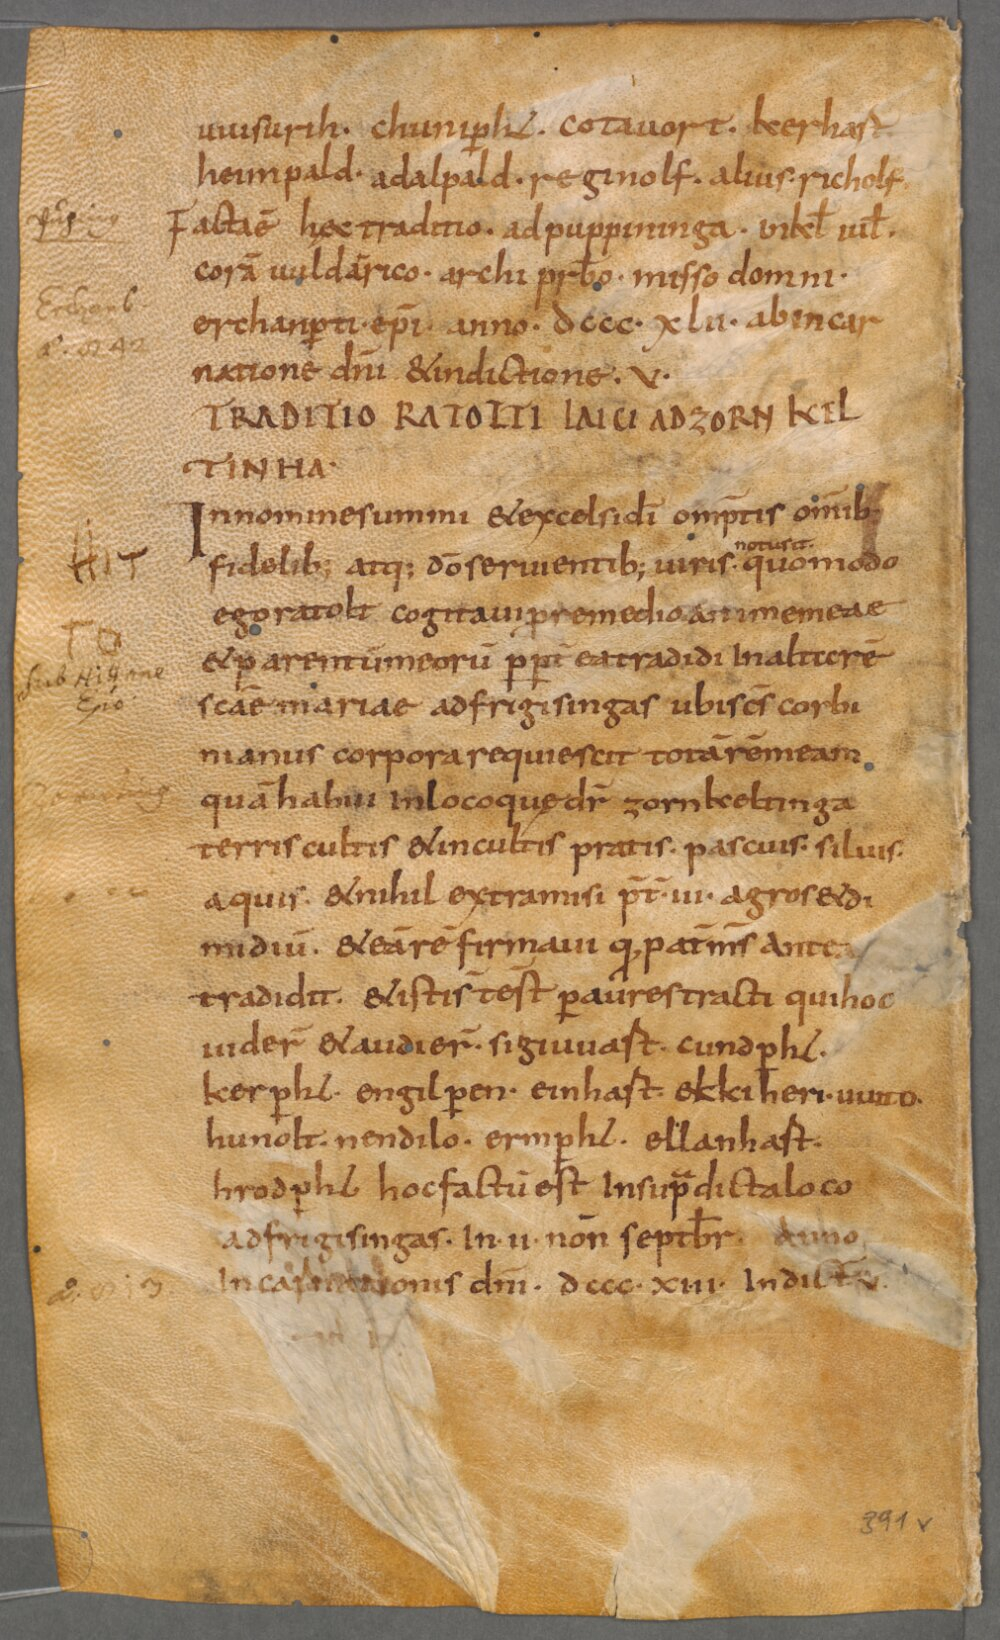 uuisurih. chuniꝑhṫ. cotauort. kerhast
heimpald. adalpald. reginolf. alius. richolf.
Factaē hęc traditio. adpuppininga. uikɫ uiɫ.
corā uuldārico. archi prb̄o. misso domni.
erchanꝑti. ep̄i. anno. dccc. xlii. abincar
natione dn̄i &indictione. v.
TRADITIO RATOLTI LAICI AD ZORN KEL
TINHA.
Innominesummi &excelsidī omp̄tis omīb.
notusit.
fidelib; atq; dōseruientib; uiris. quomodo
egoratolt cogitaui ꝓremedio animemeae
&parentūmeorū ꝑꝑī eatradidi Inalticrē
scāē mariae adfrigisingas ubiscs̄ corbi
nianus corpora requiescit totārēmeam
quāhabui inlocoquędr̄ zornkeltinga
terris cultis &incultis pratis. pascuis. siluis.
aquis. &nihil extramisi p̄t. iii. agros&di
midiū. &eārē firmaui q̨ pat̄ms̄ Antea
tradidit. &istis̄ tes̄t ꝑaures tracti quihoc
uider̄ &audier̄. sigiuuast. cundꝑhṫ.
kerꝑhṫ. engilꝑen. einhast. ekkiheri. uuito.
hunolt. nendilo. ermꝑhṫ. ellanhast.
hrodꝑhṫ hocfactūest Insup̄dictaloco
adfrigisingas. In. ii. non̄ septb̄r. Anno
Incarnationis dn̄i. dccc. xiii. Indict̄ v.
HIT
TO
sub Hittone
Epō
a. 813
391 v